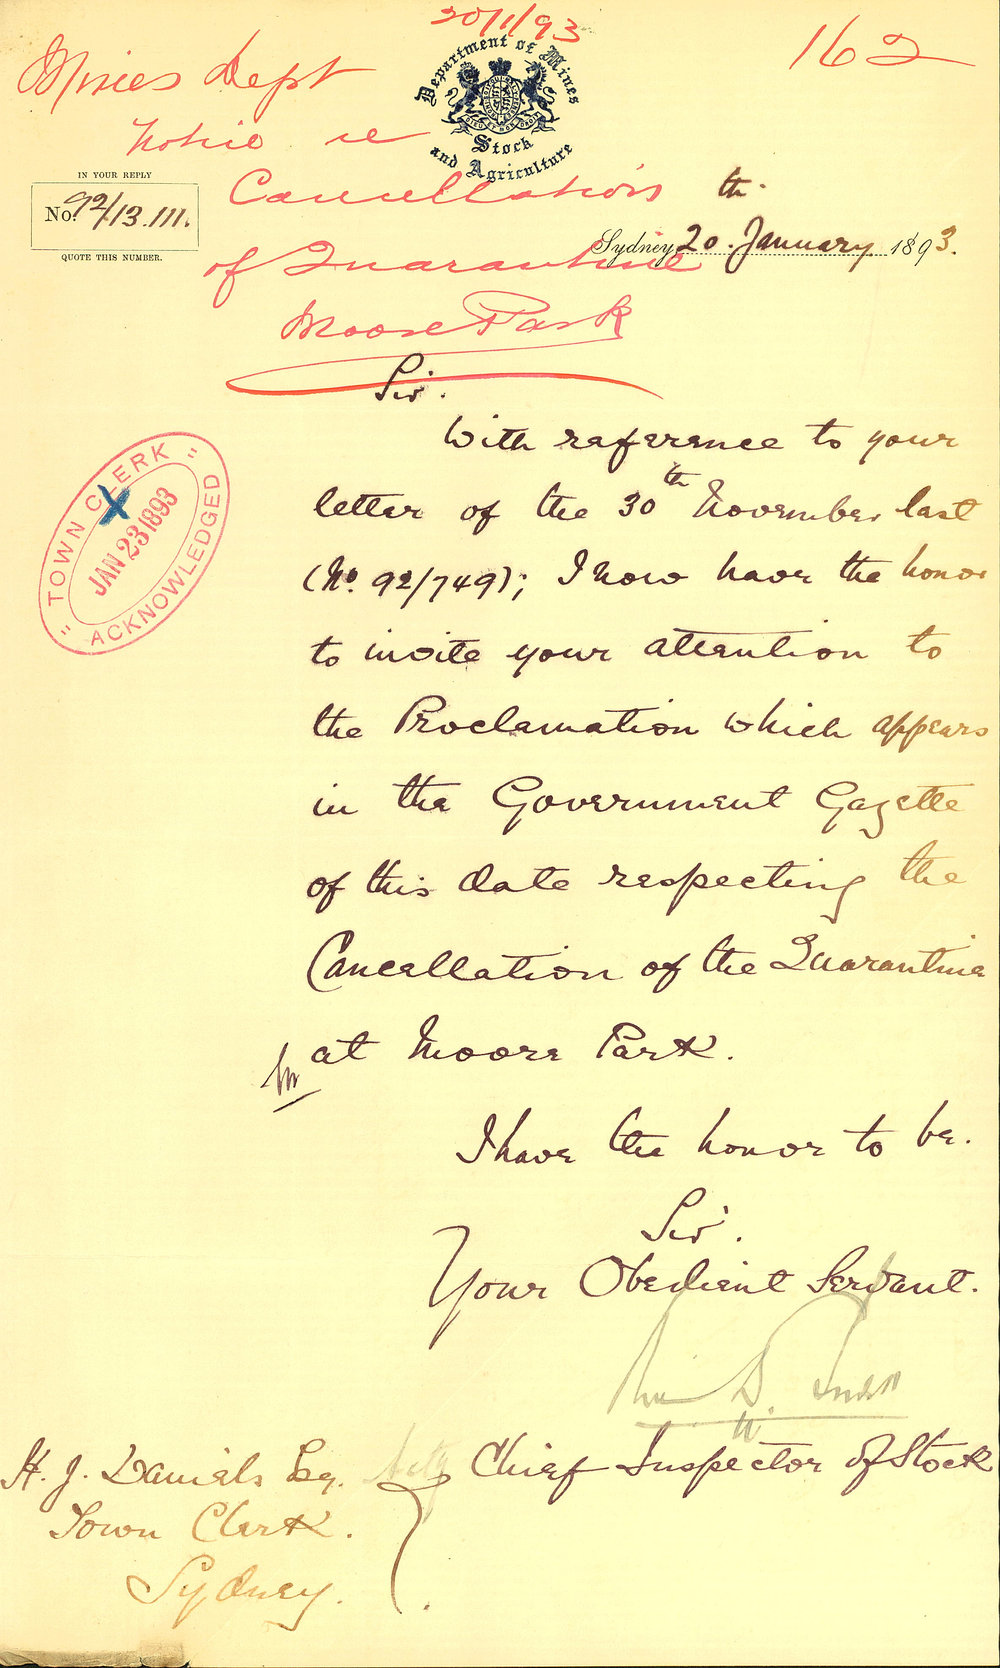 20/1/93
162
Mines Dept
Notice re
Cancellation
of Quarantine
Moore Park
Department of Mines
Stock
and Agriculture
IN YOUR REPLY
No. 92/13.111.
QUOTE THIS NUMBER.
Sydney 20th. January 1893.
Sir.
With reference to your
letter of the 30th November last
(No. 92/749); I now have the honor
to invite your attention to
the Proclamation which appears
in the Government Gazette
of this date respecting the
Cancellation of the Quarantine
at Moore Park.
"TOWN CLERK"
JAN 23 1893
ACKNOWLEDGED
I have the honor to be.
Sir.
Your Obedient Servant.
Chief Inspector of Stock
H. J. Daniels Esq.
Town Clerk.
Sydney.